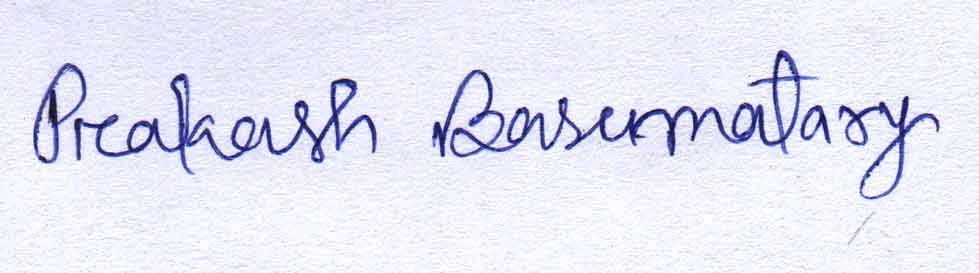 Prakash Basumatary